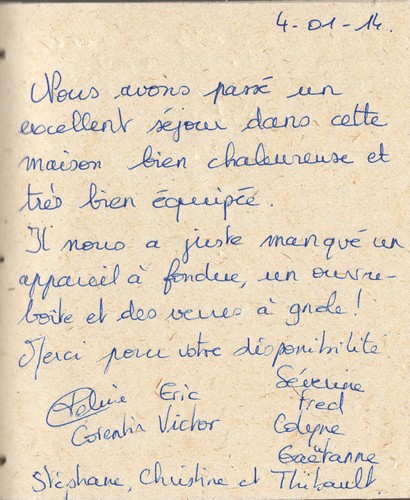 4-01-14.
Nous avons passé un
excellent séjour dans cette
maison bien chaleureuse et
très bien équipée.
Il nous a juste manqué un
appareil à fondue, un ouvre-
boite et des verres à gnole!
Merci pour votre disponibilité.
Séverine
Eric
Fred
Corentin Victor
Gaëtanne
Stéphane, Christine et Thibault.